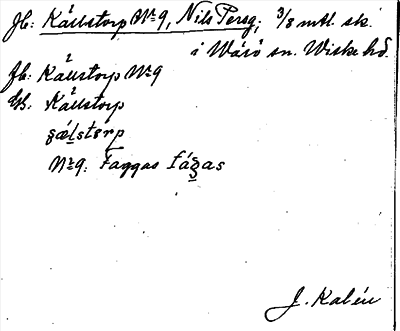 Jb: Källstorp № 9, Nils Persg; 3/8 mtl. sk.
i Wärö sn. Wiske hd.
Jb: Källstorp № 9
Uh. Källstorp
№ 9: Faggas
J. Kalén